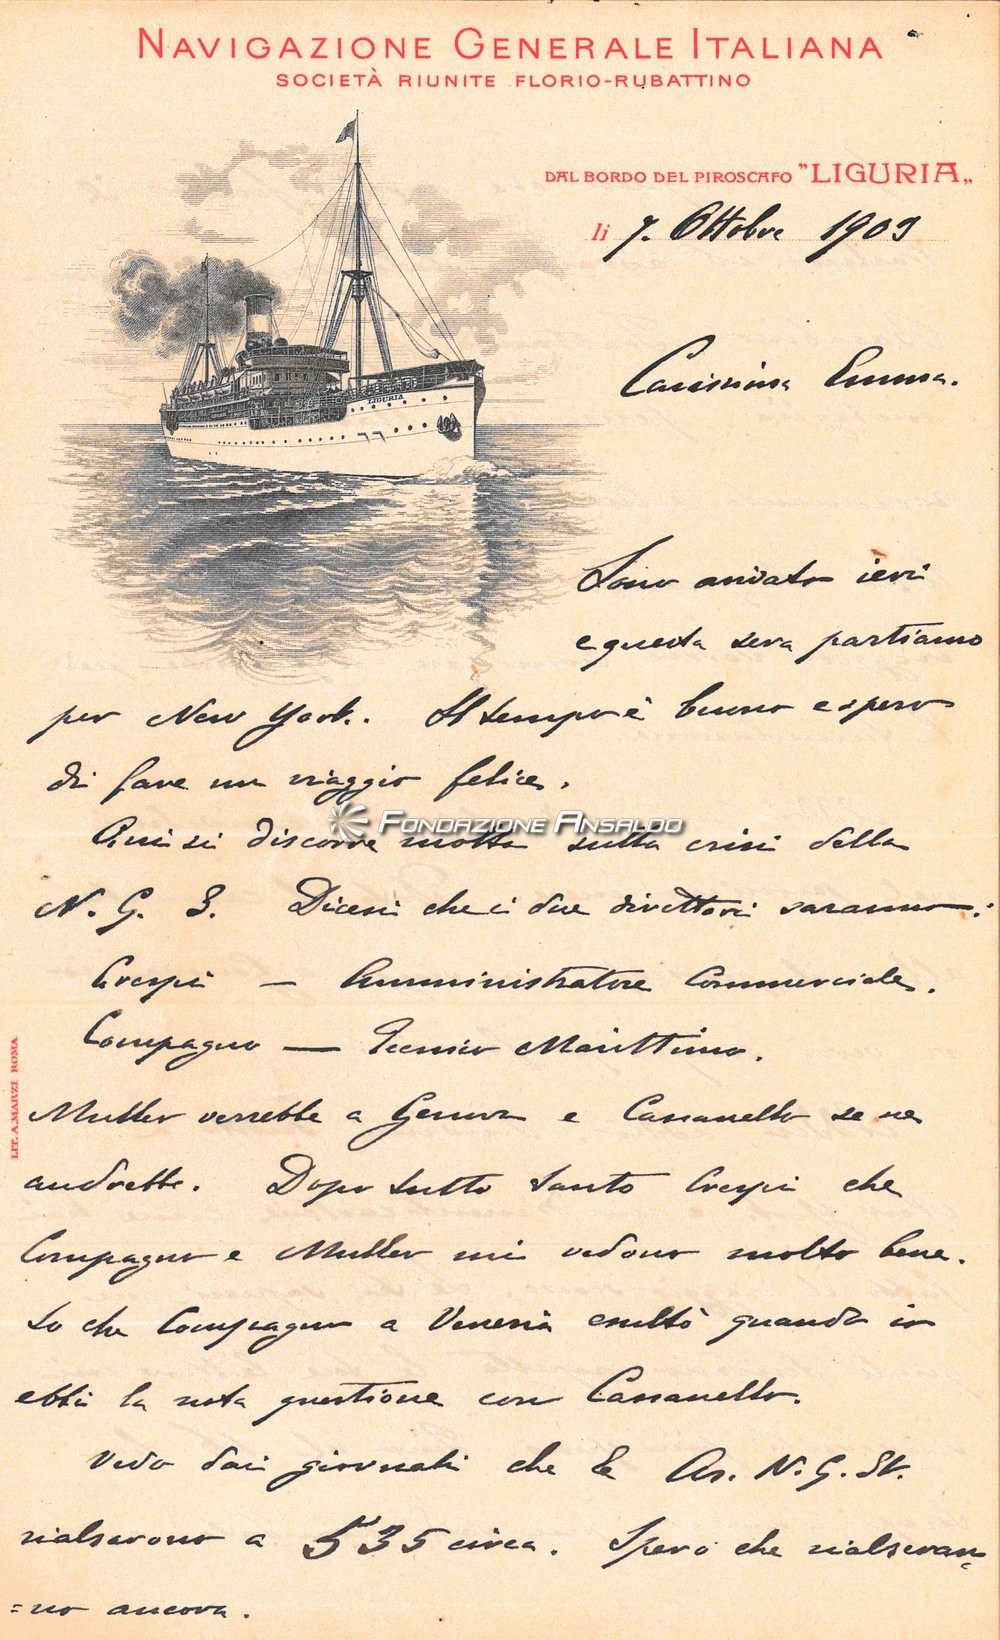 NAVIGAZIONE GENERALE ITALIANA
SOCIETÀ RIUNITE FLORIO-RUBATTINO
DAL BORDO DEL PIROSCAFO "LIGURIA„
li 7. Ottobre 1909
LIGURIA
Carissima Emma.
Sono andato ieri
e questa sera partiamo
per New York. Il tempo è buono e spero
di fare un viaggio felice.
FONDAZIONE ANSALDO
Qui si discorre molto sulla crisi della
N. G. I. Dicesi che i due direttori saranno:
Crespi — Amministratore Commerciale.
Compagno — Tecnico Marittimo.
LIT. A. MARZI ROMA
Muller verrebbe a Genova e Cassanello se ne
andrebbe. Dopo tutto tanto Crespi che
Compagno e Muller mi vedono molto bene.
So che Compagno a Venezia esultò quando io
ebbi la nota questione con Cassanello.
Vedo dai giornali che le Az. N. G. It.
rialzarono a 535 circa. Spero che rialzeran=
=no ancora.